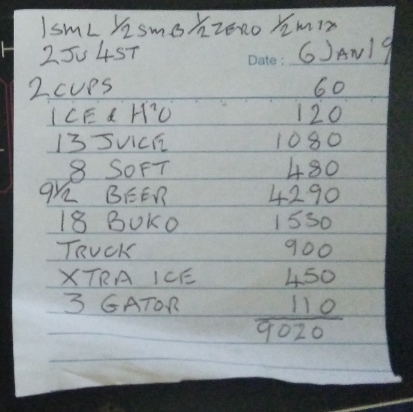 1 SML 1/2 SMB 1/2 ZERO 1/2 MIX
2 JU 4 ST Date: 6 JAN 19
2 CUPS 60
ICE & H²O 120
13 JUICE 1080
8 SOFT 480
9 1/2 BEER 4290
18 BUKO 1530
TRUCK 900
XTRA ICE 450
3 GATOR 110
9020